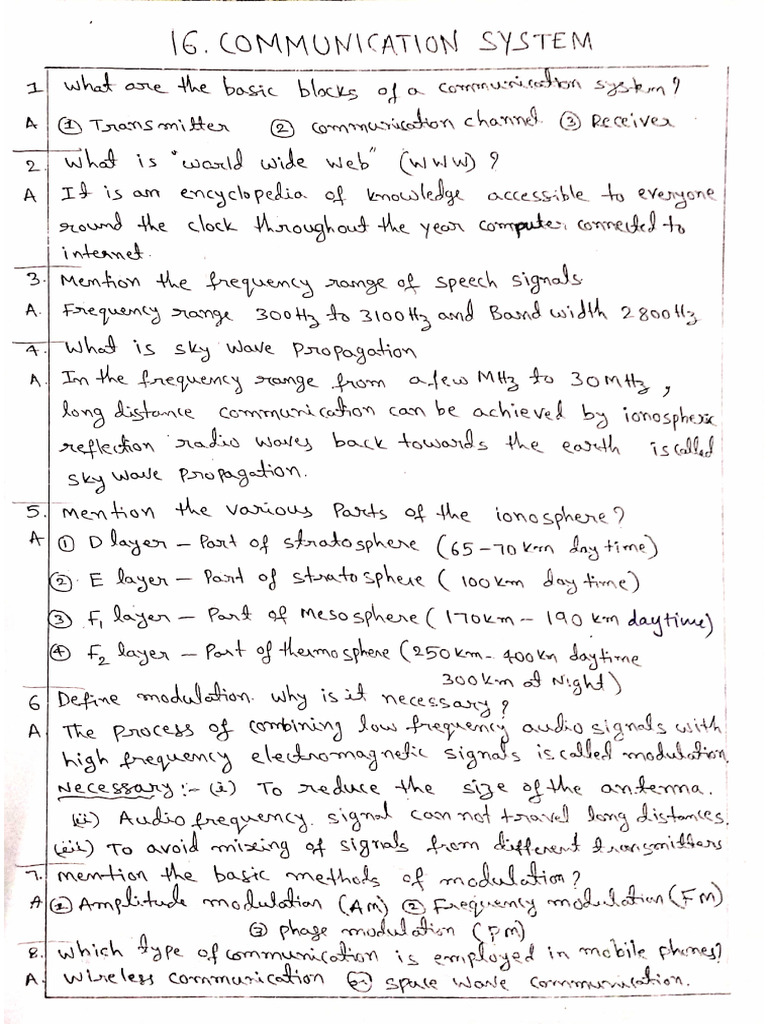 16. COMMUNICATION SYSTEM
1 What are the basic blocks of a communication system?
A ① Transmitter ② communication channel. ③ Receiver
2. What is "world wide web" (WWW) ?
A It is an encyclopedia of knowledge accessible to everyone
round the clock throughout the year computer, connected to
internet.
3. Mention the frequency range of speech signals
A. Frequency range 300Hz to 3100Hz and Band width 2800Hz
4. What is sky wave propagation
A. In the frequency range from a few MHz to 30MHz,
long distance communication can be achieved by ionospheric
reflection radio waves back towards the earth is called
sky wave propagation.
5. Mention the various parts of the ionosphere?
A ① D layer – Part of stratosphere (65–70 km day time)
② E layer – Part of stratosphere (100km day time)
③ F₁ layer – Part of Mesosphere (170km – 190 km daytime)
④ F₂ layer – Part of thermosphere (250km – 400km daytime
300km at Night)
6 Define modulation. why is it necessary?
A. The process of combining low frequency audio signals with
high frequency electromagnetic signals is called modulation.
Necessary :– (i) To reduce the size of the antenna.
(ii) Audio frequency signal can not travel long distances.
(iii) To avoid mixing of signals from different transmitters
7. mention the basic methods of modulation?
A ① Amplitude modulation (AM) ② Frequency modulation (FM)
③ phase modulation (PM)
8. Which type of communication is employed in mobile phones?
A. Wireless communication space wave communication.